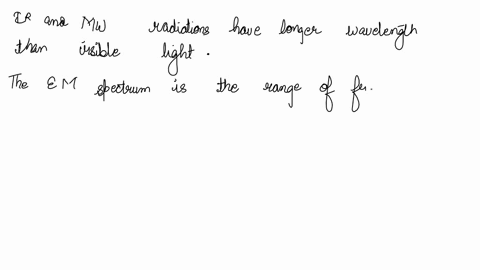 IR and MW radiations have longer wavelength
than visible light.
The EM spectrum is the range of